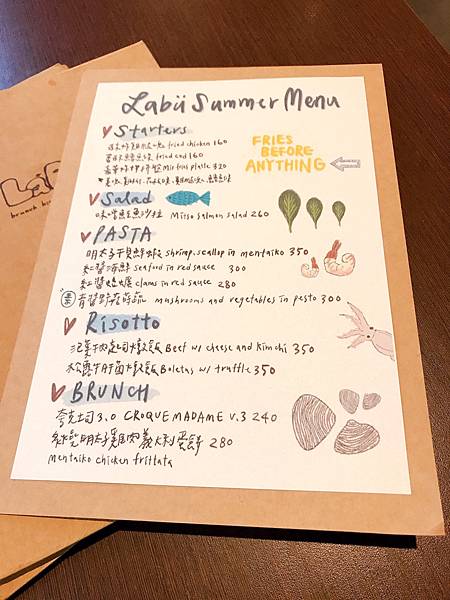 Labii Summer Menu
Starters
fried chicken 160
fried cod 160
plate 320
FRIES
BEFORE
ANYTHING
Salad
味噌鮭魚沙拉 Miiso salmon salad 260
PASTA
明太子干貝鮮蝦 shrimp.scallop in mentaiko 350
紅醬海鮮 seafood in red sauce 300
紅醬蛤蠣 clams in red sauce 280
素 青醬野菇時蔬 mushrooms and vegetables in pesto 300
Risotto
泡菜牛肉起司燉飯 Beef w/ cheese and kimchi 350
松露牛肝菌燉飯 Boletas w/ truffle 350
BRUNCH
夸克土司 3.0 CROQUE MADAME V.3 240
明太子雞肉義大利蛋餅 280
mentaiko chicken frittata
brunch